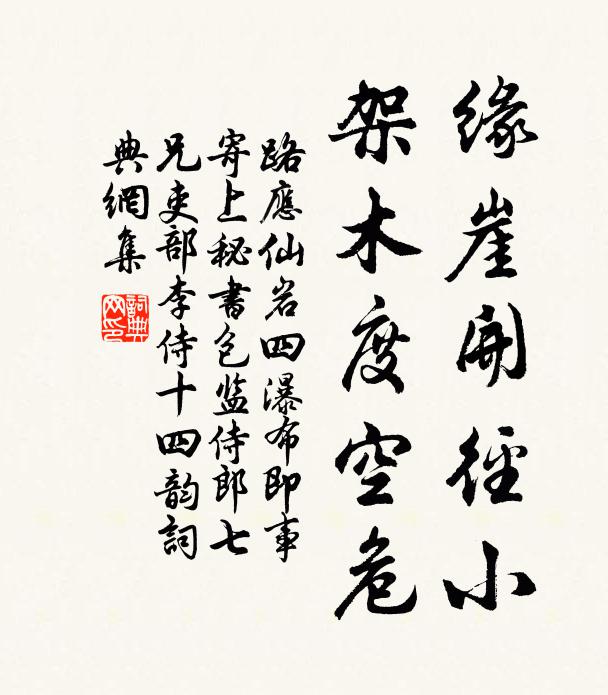 缘崖開徑小
架木度空危
路應仙岩四瀑布即事
寄上秘書包監侍郎七
兄吏部李侍十四韵詞
典網集
詞典網印